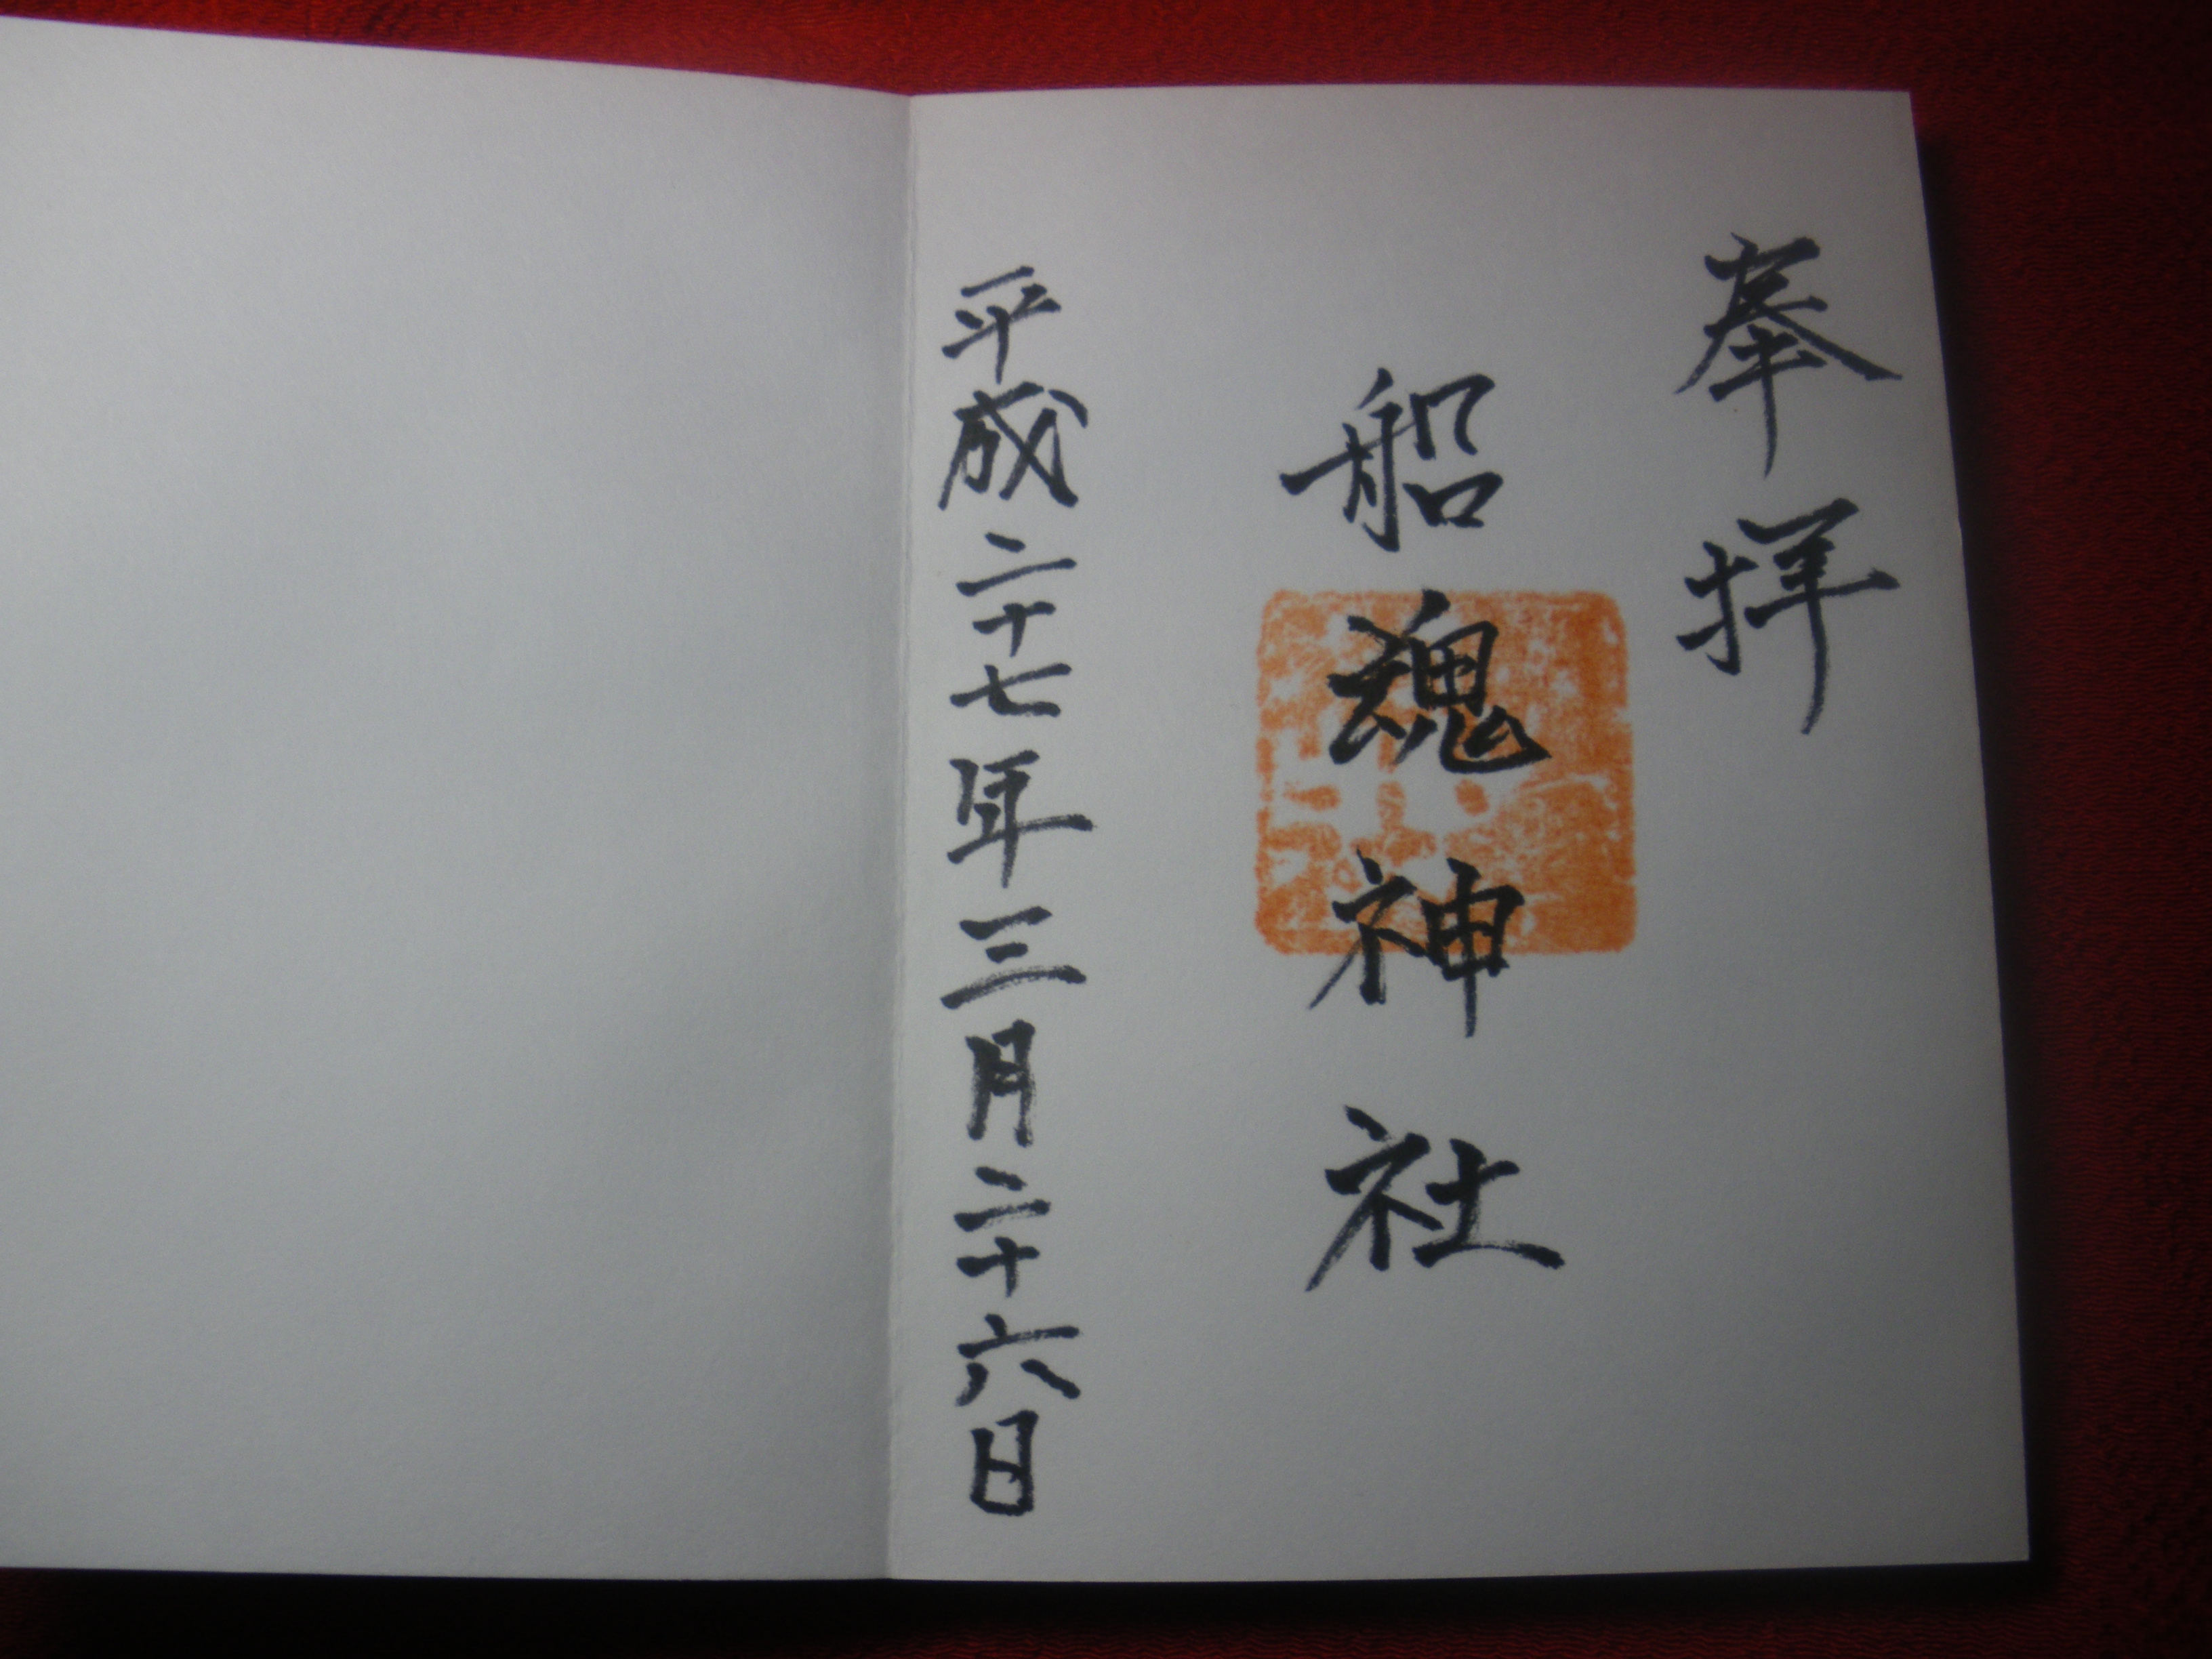 奉拝
船魂神社
平成二十七年三月二十六日